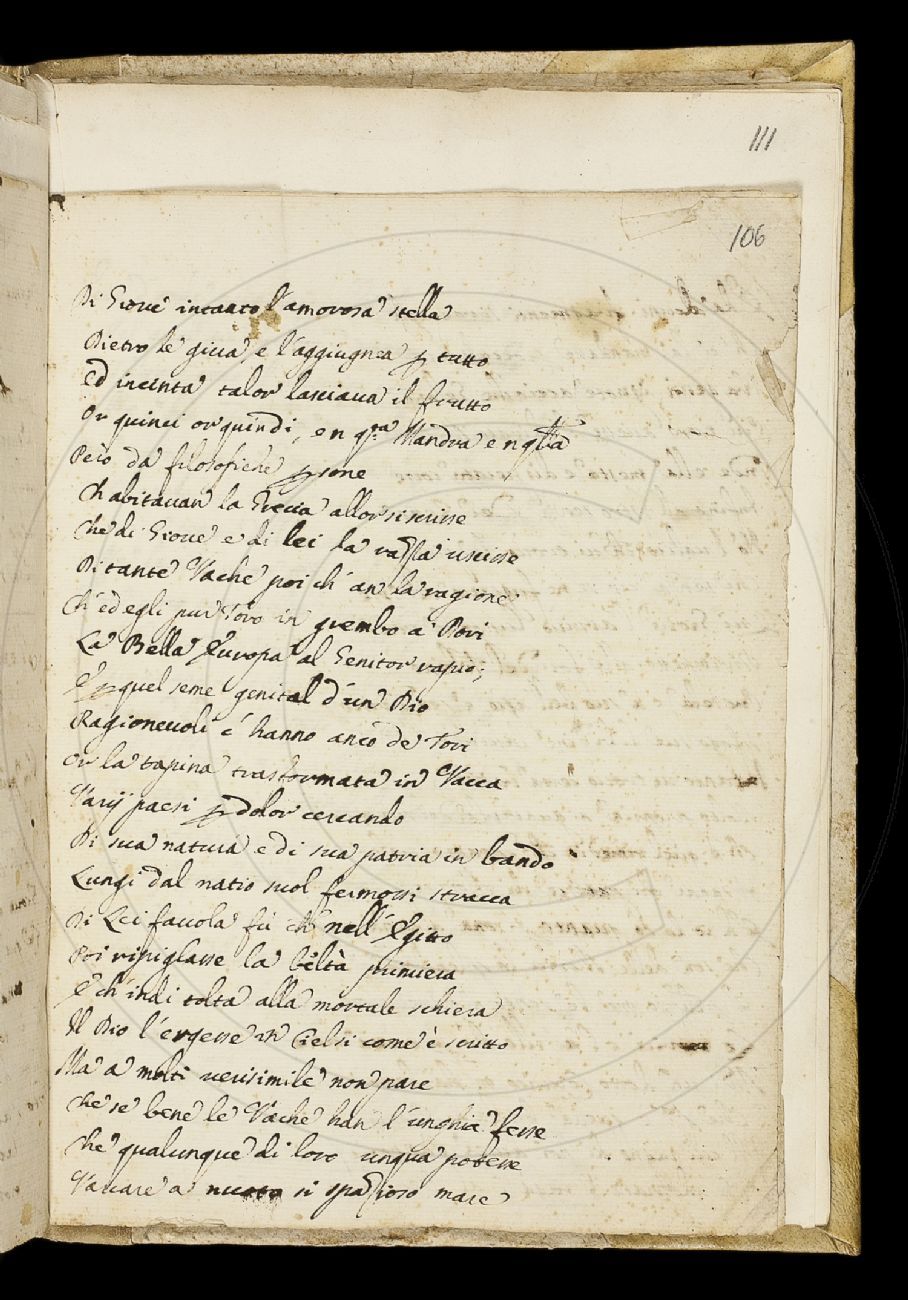 111
106
Di Gioue intanto l'amorosa stella
Dietro le giua, e l'aggiugnea p tutto
Ed incinta talor lasciaua il frutto
Or quinci or quindi, e n q.ta Mandra e n qlla
Però da filosofiche psone
Ch abitauan la Grecia allor si scrisse
Che di Gioue e di lei la razza uscisse
Di tante Vache poi ch' an la ragione
Ch' ed egli pur Toro in grembo a Dori
La Bella Europa al Genitor rapio;
E p quel seme genital d'un Dio
Ragioneuoli c' hanno anco de Tori
Or la tapina trasformata in Vacca
Varij paesi p dolor cercando
Di sua natura e di sua patria in bando
Lungi dal natio suol fermossi stracca
Di Lei fauola fù ch' nell' Egitto
Poi ripiglasse la beltà primiera
E ch' indi tolta alla mortale schiera
Il Dio l'ergesse in Ciel si come è scritto
Ma a molti uerisimile non pare
Che se bene le Vache han l'unghie fesse
Che qualunque di loro unqua potesse
Varcare a nuoto si spazioso mare